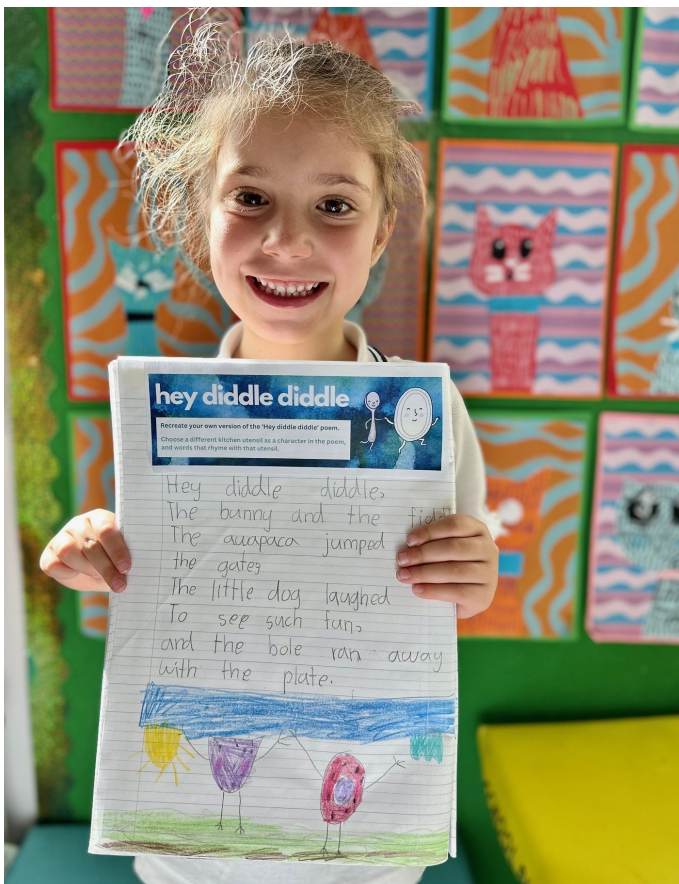 hey diddle diddle
Recreate your own version of the 'Hey diddle diddle' poem.
Choose a different kitchen utensil as a character in the poem,
and words that rhyme with that utensil.
Hey diddle diddle,
The bunny and the
The auapaca jumped
the gate,
The little dog laughed
To see such fun,
and the bole ran away
with the plate.